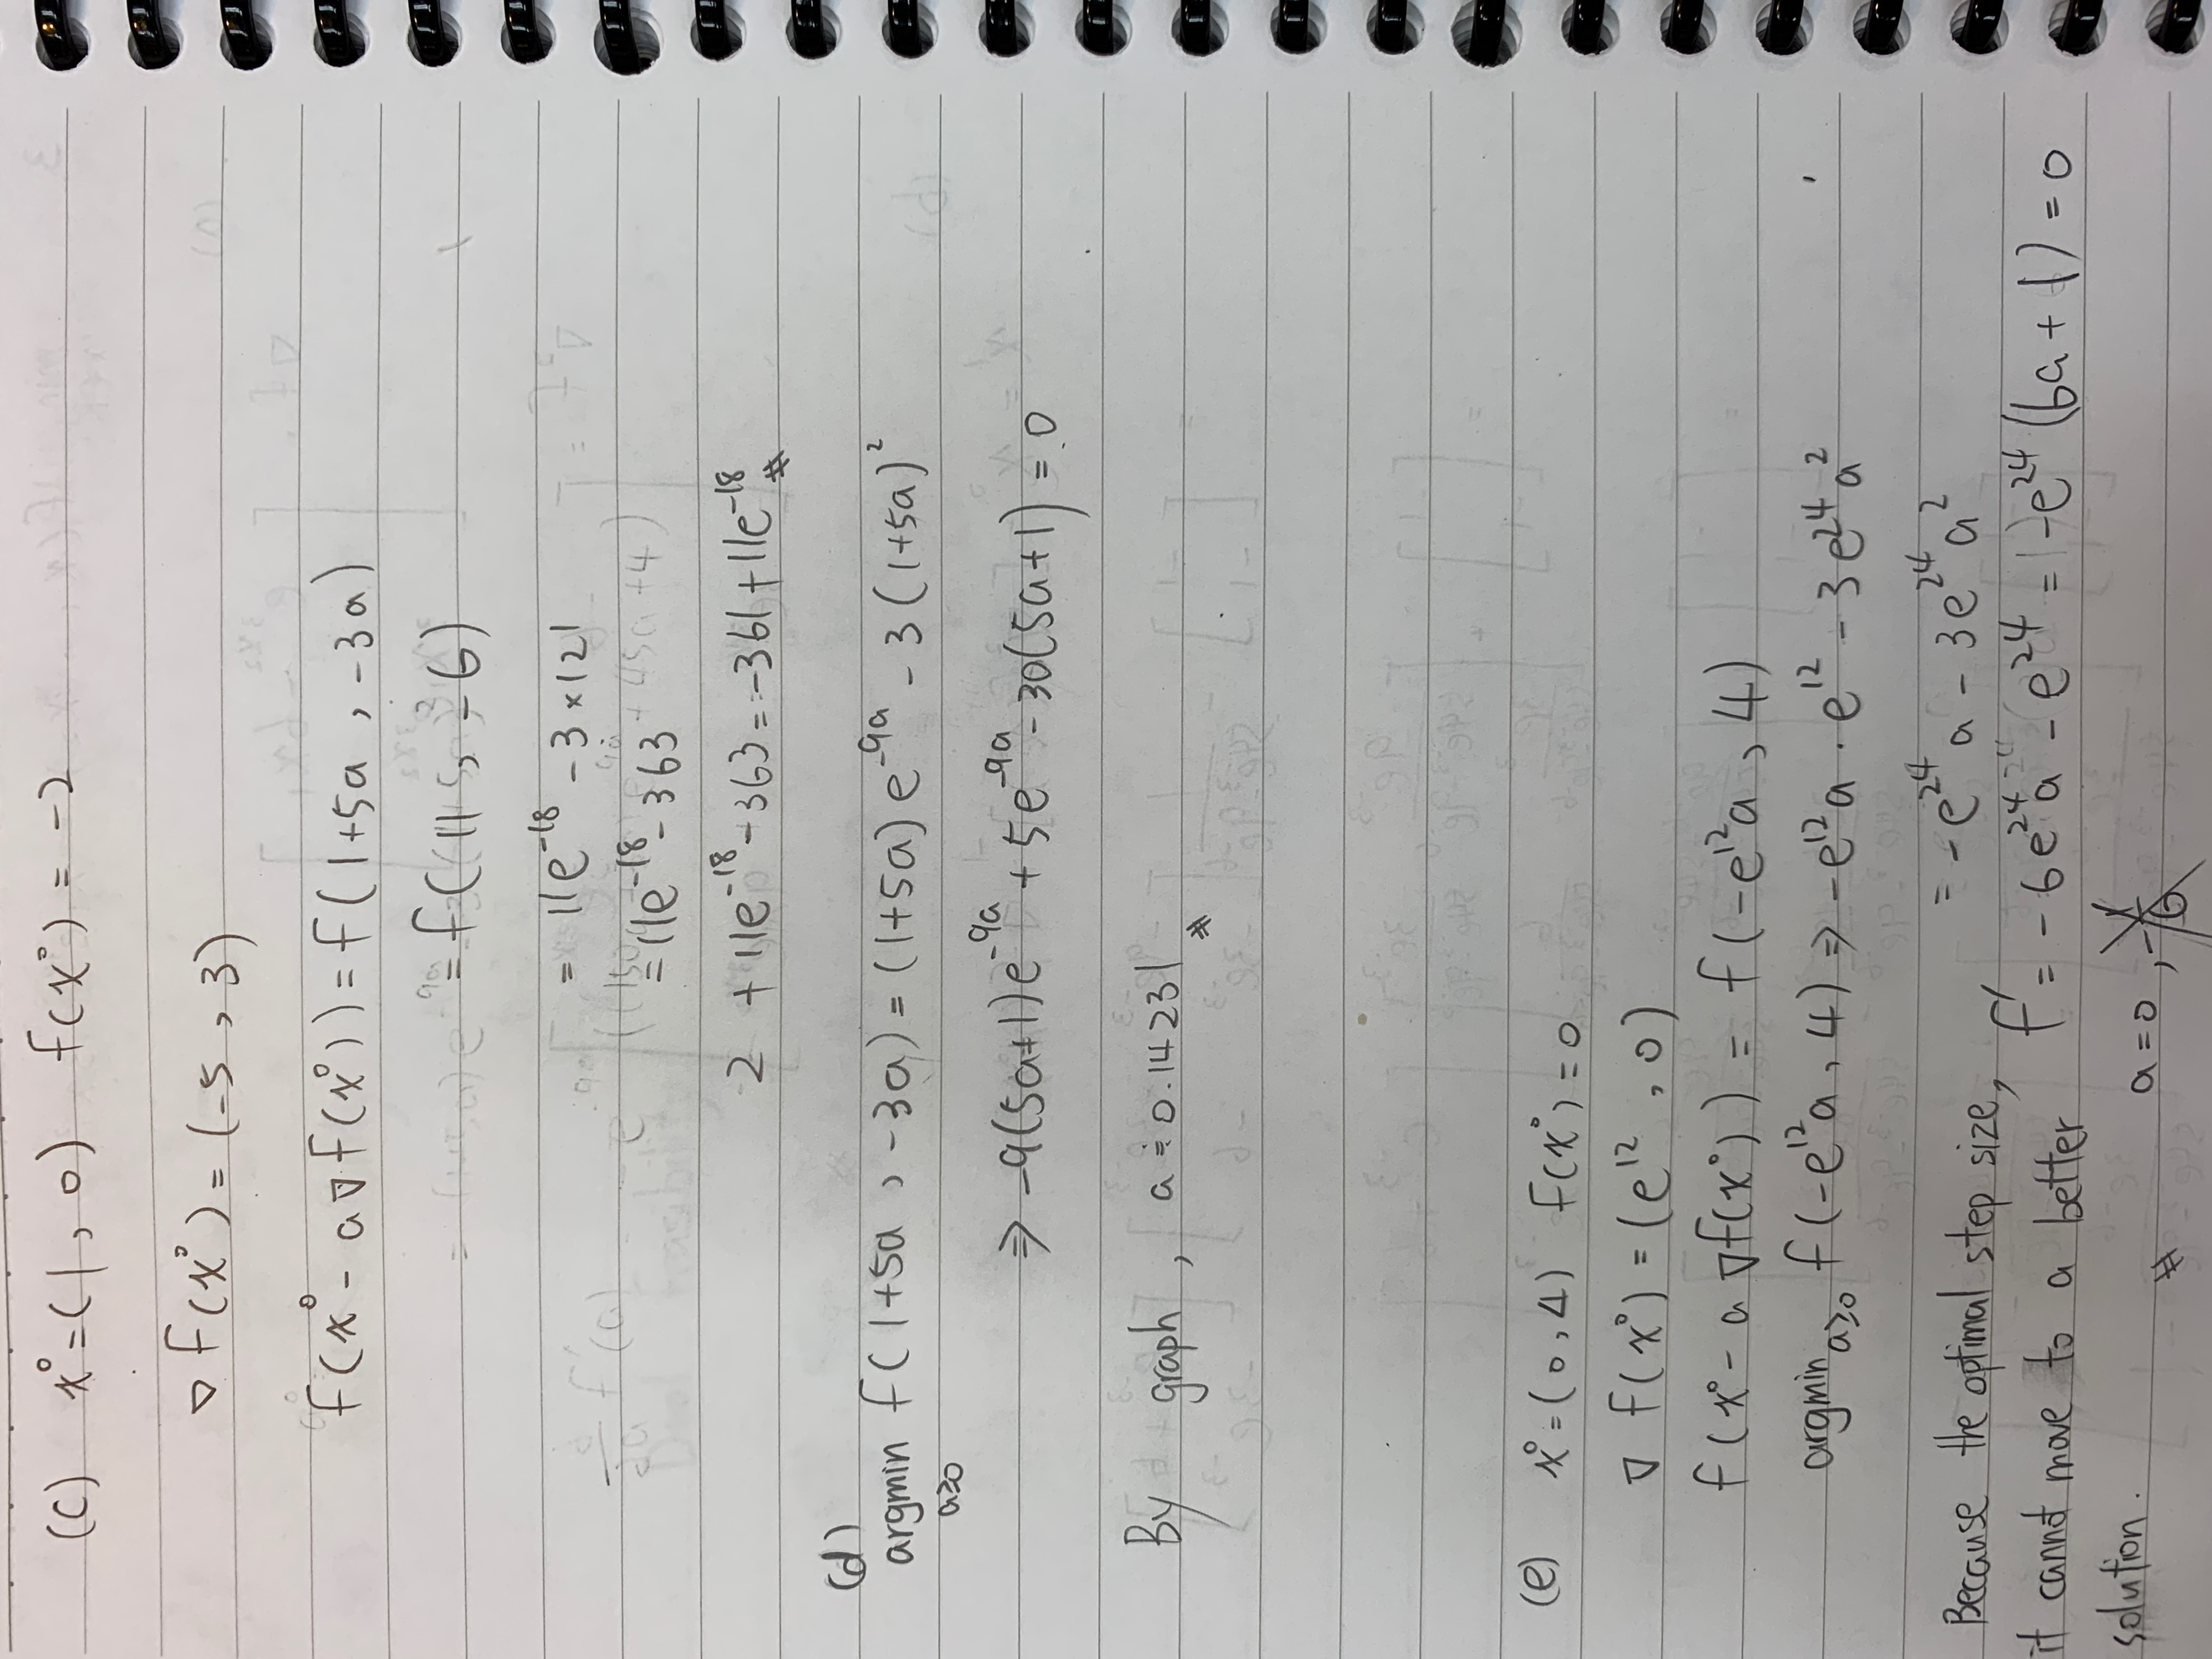 (c) x⁰=(1,0) f(x⁰)=-2
∇f(x⁰)=(-5,3)
f(x⁰-a∇f(x⁰))=f(1+5a,-3a)
=f(11,-6)
=11e⁻¹⁸-3×121
=11e⁻¹⁸-363
2+11e⁻¹⁸-363=-361+11e⁻¹⁸ #
(d)
argmin f(1+5a,-3a)=(1+5a)e⁻⁹ᵃ-3(1+5a)²
a≥0
⇒-9(5a+1)e⁻⁹ᵃ+5e⁻⁹ᵃ-30(5a+1)=0
By graph, a≐0.14231 #
(e) x⁰=(0,4) f(x⁰)=0
∇f(x⁰)=(e¹²,0)
f(x⁰-a∇f(x⁰))=f(-e¹²a,4)
argmin f(-e¹²a,4)⇒-e¹²a·e¹²-3e²⁴a²
a≥0
=-e²⁴a-3e²⁴a²
Because the optimal step size, f'=-6e²⁴a-e²⁴=-e²⁴(6a+1)=0
it cannot move to a better a=0,-1/6
solution. #